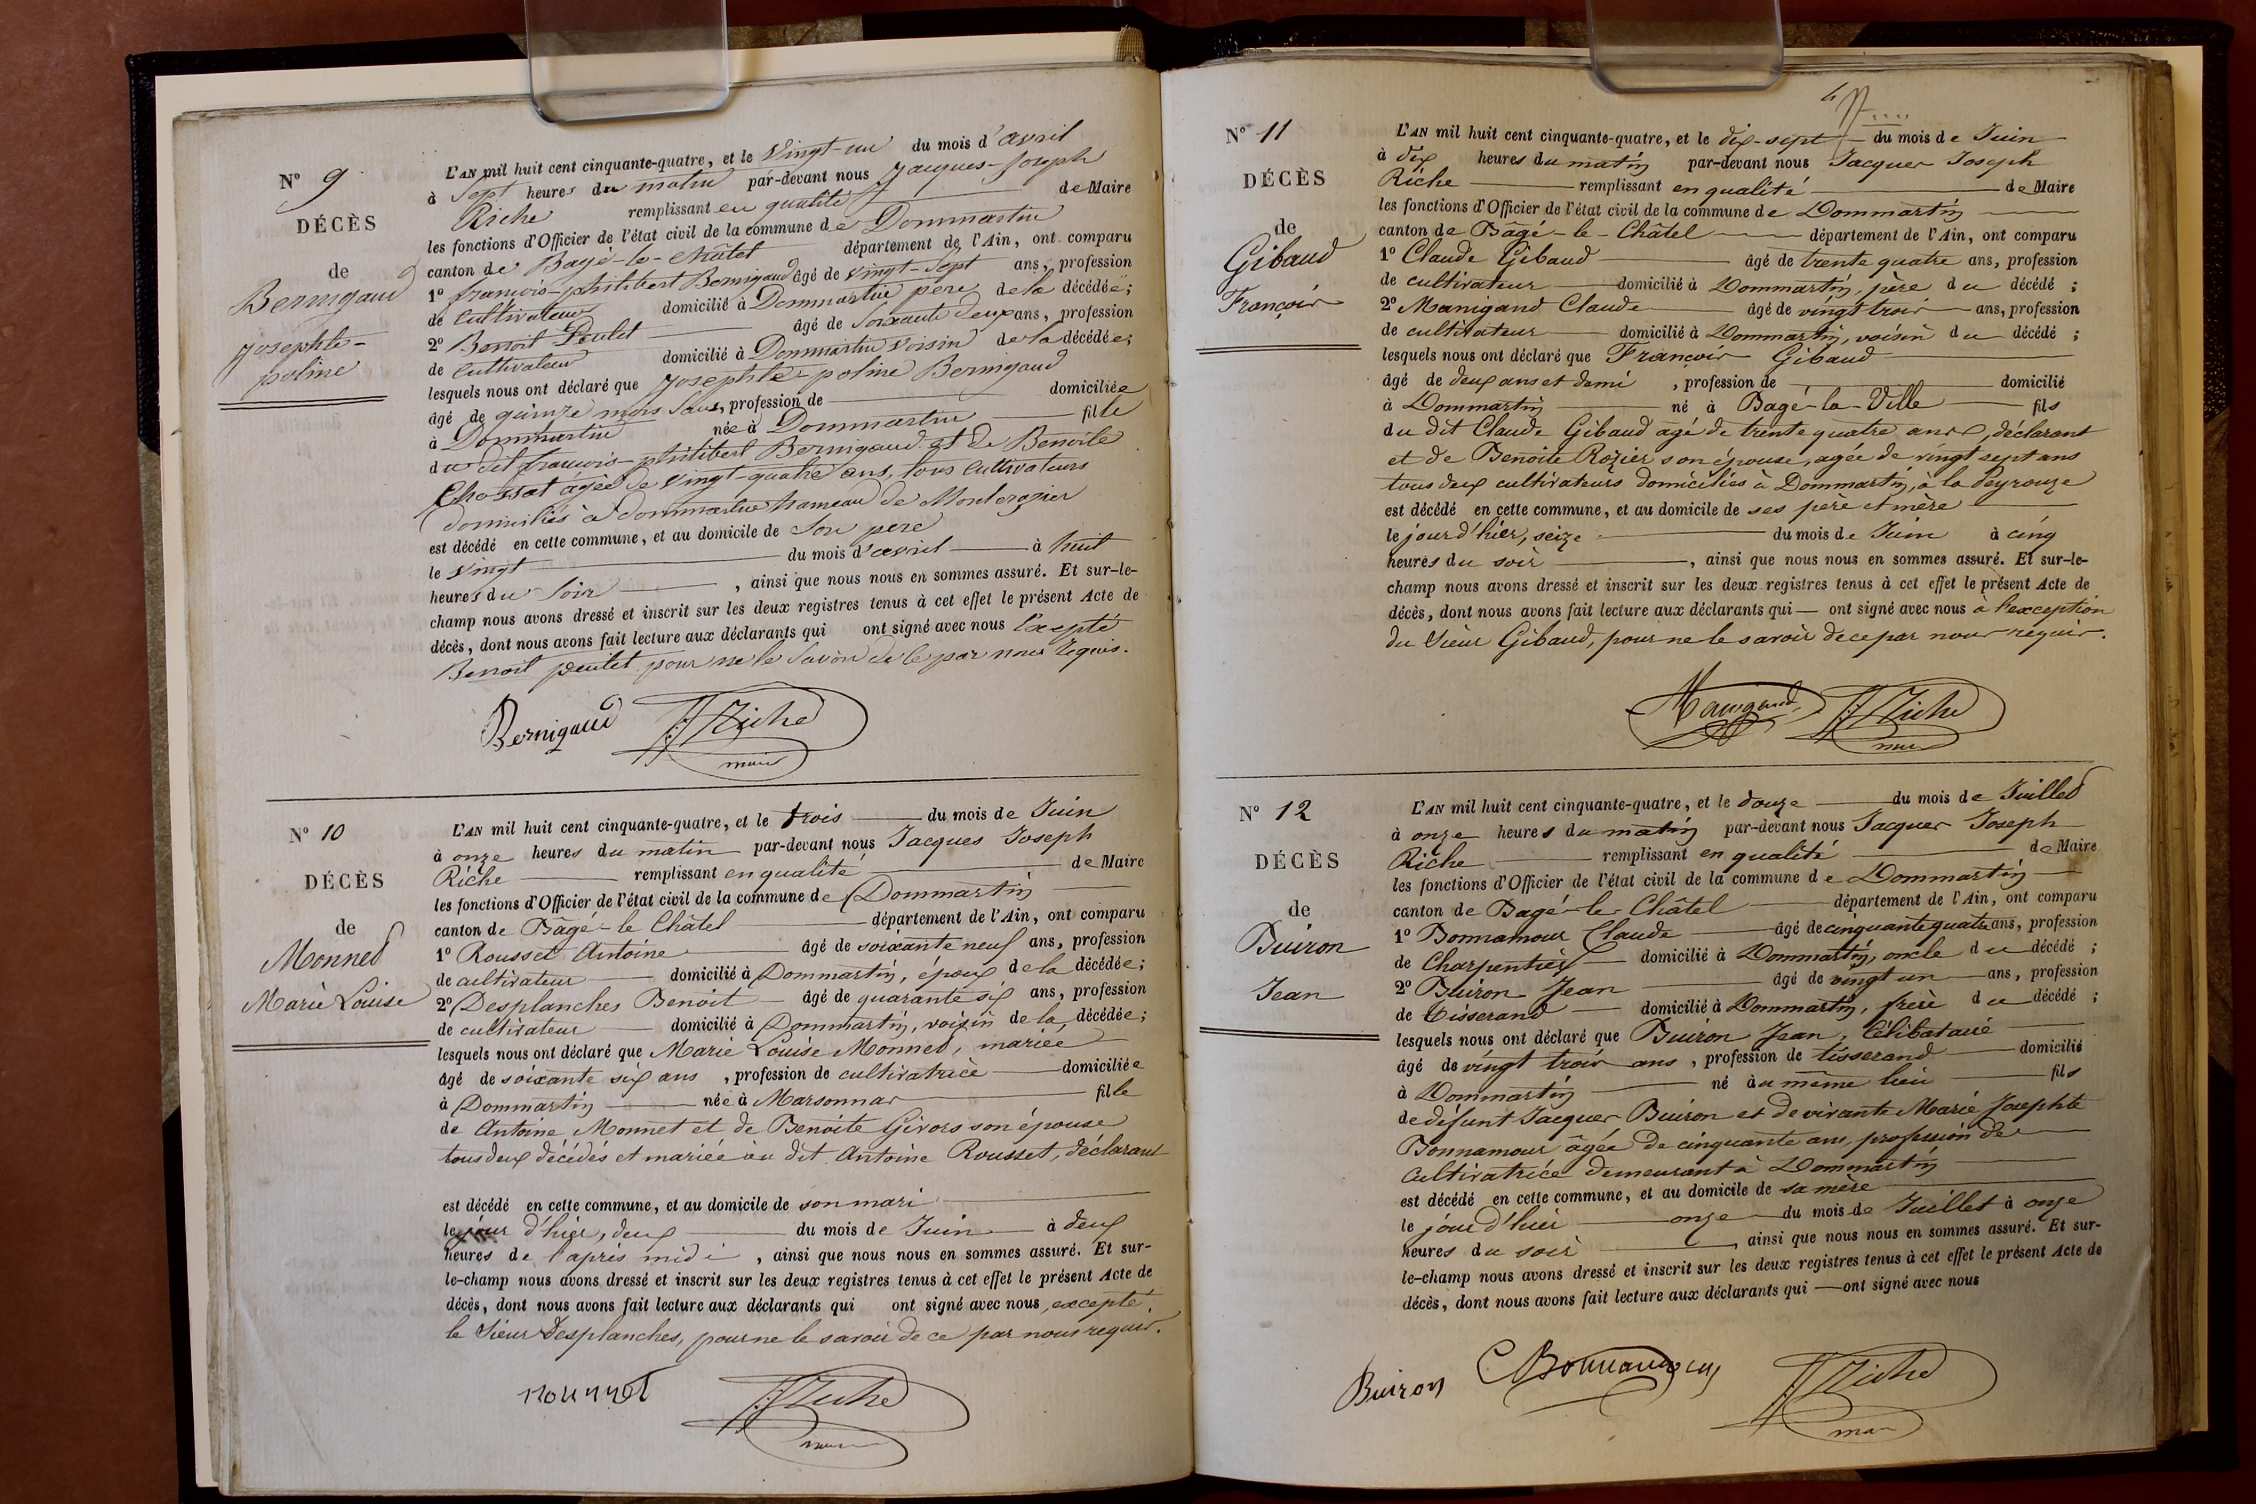 N° 9
DÉCÈS
de
Bernigaud
Josephte-
poline
L'AN mil huit cent cinquante-quatre, et le Vingt-un du mois d'avril
à Sept heures du matin par-devant nous Jacques-Joseph
Riche remplissant en qualité de Maire
les fonctions d'Officier de l'état civil de la commune de Dommartin
canton de Bagé-le-Châtel département de l'Ain, ont comparu
1° francois-philibert Bernigaud âgé de vingt-sept ans, profession
de Cultivateur domicilié à Dommartin père de la décédée;
2° Benoit Peulet âgé de Soixante deux ans, profession
de Cultivateur domicilié à Dommartin Voisin de la décédée;
lesquels nous ont déclaré que Josephte-poline Bernigaud
âgé de quinze mois Sans, profession de domiciliée
à Dommartin née à Dommartin fille
du dit francois-philibert Bernigaud et de Benoite
Chossat agée de vingt-quatre ans, tous Cultivateurs
domiciliés à dommartin hameau de Monterozier
est décédé en cette commune, et au domicile de Son pere
le Vingt du mois d'avril à huit
heures du Soir, ainsi que nous nous en sommes assuré. Et sur-le-
champ nous avons dressé et inscrit sur les deux registres tenus à cet effet le présent Acte de
décès, dont nous avons fait lecture aux déclarants qui ont signé avec nous Excepté
Benoit peulet pour ne le Savoir de Ce par nous requis.
Bernigaud JJRiche
maire
N° 10
DÉCÈS
de
Monnet
Marie Louise
L'AN mil huit cent cinquante-quatre, et le trois du mois de Juin
à onze heures du matin par-devant nous Jacques Joseph
Riche remplissant en qualité de Maire
les fonctions d'Officier de l'état civil de la commune de Dommartin
canton de Bâgé-le Châtel département de l'Ain, ont comparu
1° Rousset Antoine âgé de soixante neuf ans, profession
de cultivateur domicilié à Dommartin, époux de la décédée;
2° Desplanches Benoit âgé de quarante six ans, profession
de cultivateur domicilié à Dommartin, voisin de la décédée;
lesquels nous ont déclaré que Marie Louise Monnet, mariée
âgé de soixante six ans, profession de cultivatrice domiciliée
à Dommartin née à Marsonnas fille
de Antoine Monnet et de Benoite Givors son épouse
tous deux décédés et mariée au dit Antoine Rousset, déclarant
est décédé en cette commune, et au domicile de son mari
le jour d'hier, deux du mois de Juin à deux
heures de l'après midi, ainsi que nous nous en sommes assuré. Et sur-
le-champ nous avons dressé et inscrit sur les deux registres tenus à cet effet le présent Acte de
décès, dont nous avons fait lecture aux déclarants qui ont signé avec nous, excepté
le Sieur Desplanches, pour ne le savoir de ce par nous requis.
JJRiche
maire
N° 11
DÉCÈS
de
Gibaud
François
L'AN mil huit cent cinquante-quatre, et le dix-sept du mois de Juin
à dix heures du matin par-devant nous Jacques Joseph
Riche remplissant en qualité de Maire
les fonctions d'Officier de l'état civil de la commune de Dommartin
canton de Bâgé-le-Châtel département de l'Ain, ont comparu
1° Claude Gibaud âgé de trente quatre ans, profession
de cultivateur domicilié à Dommartin, père du décédé;
2° Manigand Claude âgé de vingt trois ans, profession
de cultivateur domicilié à Dommartin, voisin du décédé;
lesquels nous ont déclaré que François Gibaud
âgé de deux ans et demi, profession de domicilié
à Dommartin né à Bagé-la-Ville fils
du dit Claude Gibaud agé de trente quatre ans, déclarant
et de Benoite Rozier son épouse, agée de vingt sept ans
tous deux cultivateurs domiciliés à Dommartin, à la Peyrouze
est décédé en cette commune, et au domicile de ses père et mère
le jour d'hier, seize du mois de Juin à cinq
heures du soir, ainsi que nous nous en sommes assuré. Et sur-le-
champ nous avons dressé et inscrit sur les deux registres tenus à cet effet le présent Acte de
décès, dont nous avons fait lecture aux déclarants qui ont signé avec nous à l'exception
du Sieur Gibaud, pour ne le savoir de ce par nous requis.
Manigand JJRiche
maire
N° 12
DÉCÈS
de
Buiron
Jean
L'AN mil huit cent cinquante-quatre, et le douze du mois de Juillet
à onze heures du matin par-devant nous Jacques Joseph
Riche remplissant en qualité de Maire
les fonctions d'Officier de l'état civil de la commune de Dommartin
canton de Bagé-le-Châtel département de l'Ain, ont comparu
1° Bonnamour Claude âgé de cinquante quatre ans, profession
de Charpentier domicilié à Dommartin, oncle du décédé;
2° Buiron Jean âgé de vingt un ans, profession
de tisserand domicilié à Dommartin, frère du décédé;
lesquels nous ont déclaré que Buiron Jean, Célibataire
âgé de vingt trois ans, profession de tisserand domicilié
à Dommartin né au même lieu fils
de défunt Jacques Buiron et de vivante Marie Josephte
Bonnamour âgée de cinquante ans, profession de
cultivatrice demeurant à Dommartin
est décédé en cette commune, et au domicile de sa mère
le jour d'hier onze du mois de Juillet à onze
heures du soir, ainsi que nous nous en sommes assuré. Et sur-
le-champ nous avons dressé et inscrit sur les deux registres tenus à cet effet le présent Acte de
décès, dont nous avons fait lecture aux déclarants qui ont signé avec nous
Buiron C Bonnamour JJRiche
maire